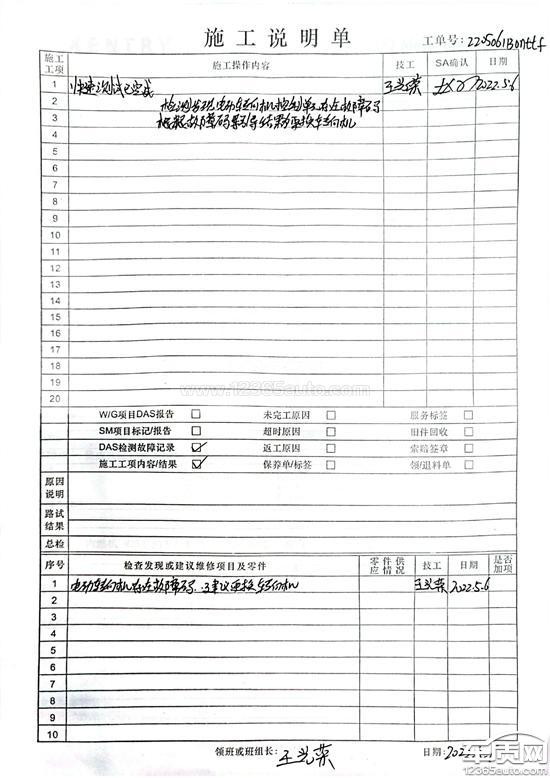 施工说明单
工单号: 2205061Bonttf
施工工项 施工操作内容 技工 SA确认 日期
1 快速测试已完成 王兴荣 2022.5.6
2 检测发现电动转向机控制单元存在故障码
3 根据故障码引导结果更换转向机
4
5
6
7
8
9
10
11
12
13
14
15
16
17
18
19
20
www.12365auto.com
W/G项目DAS报告 □ 未完工原因 □ 服务标签 □
SM项目标记/报告 □ 超时原因 □ 旧件回收 □
DAS检测故障记录 ☑ 返工原因 □ 索赔签章 □
施工工项内容/结果 ☑ 保养单/标签 □ 领/退料单 □
原因说明
路试结果
总检
序号 检查发现或建议维修项目及零件 零件供应情况 技工 日期 是否加项
1 电动转向机存在故障码,建议更换转向机 王兴荣 2022.5.6
2
3
4
5
6
7
8
9
10
领班或班组长: 王兴荣 日期: 2022.5.6
车质网
12365auto.com